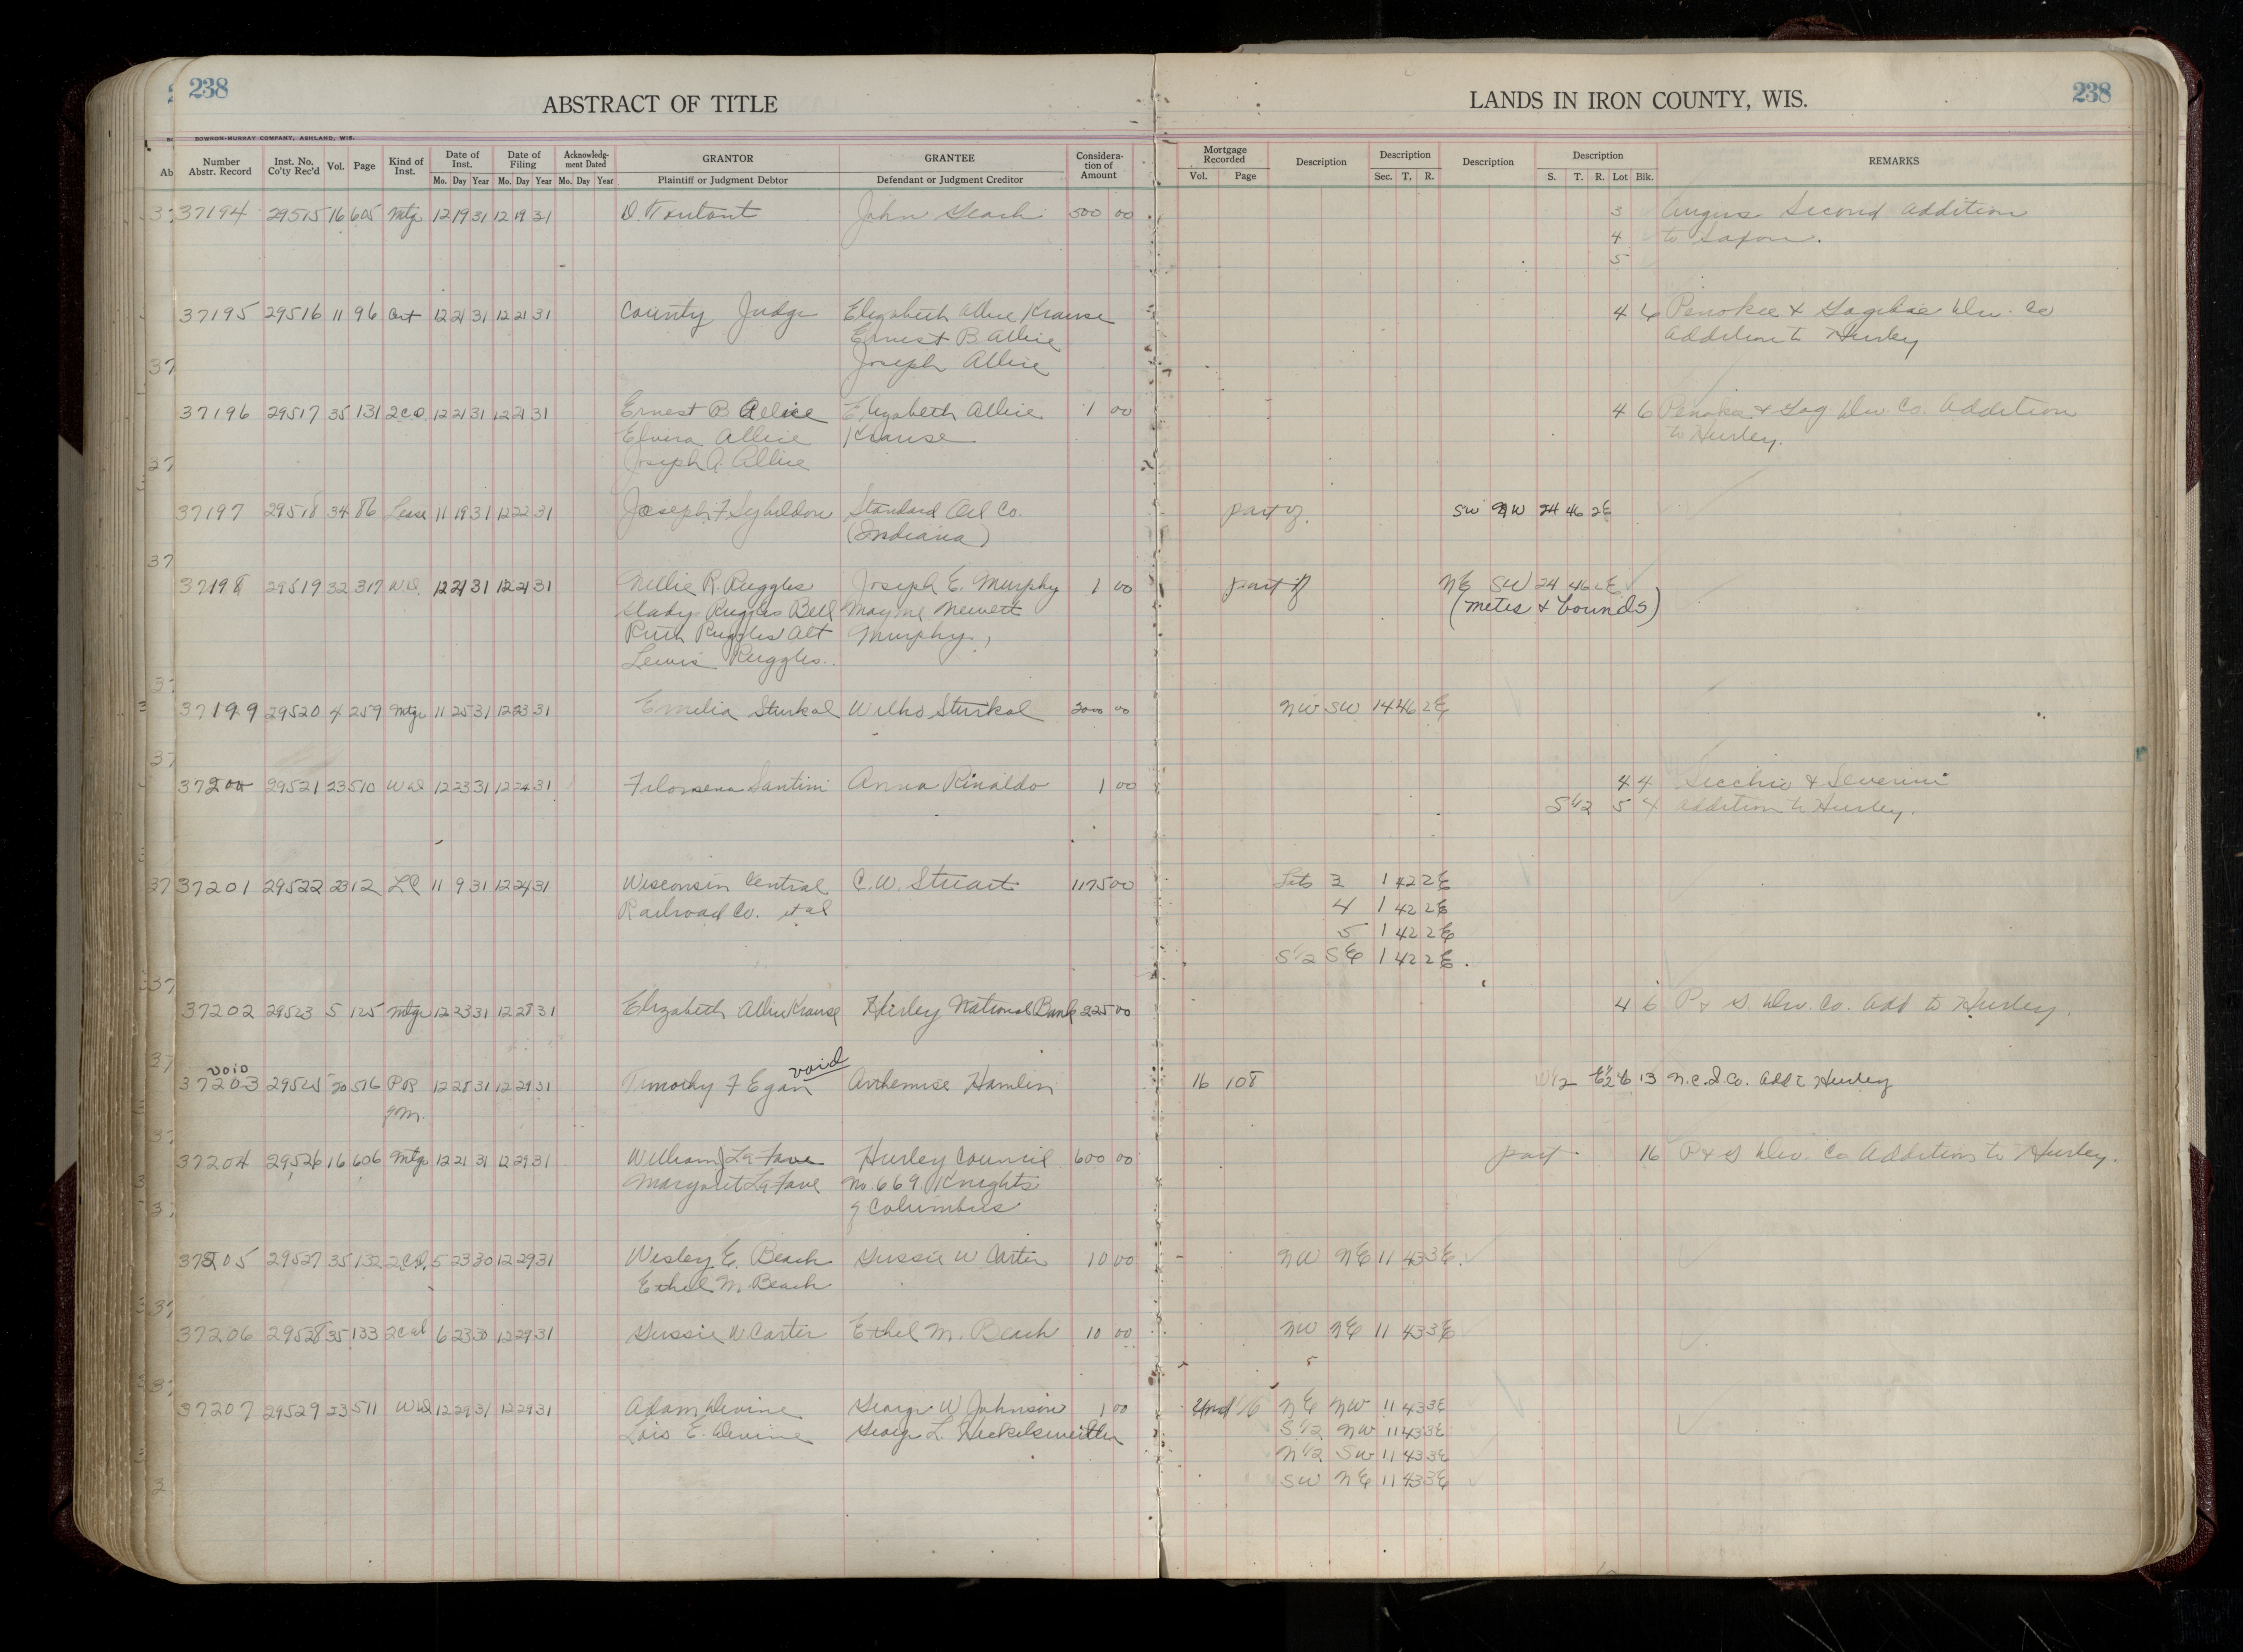 238 ABSTRACT OF TITLE LANDS IN IRON COUNTY, WIS. 238
BOWRON-MURRAY COMPANY, ASHLAND, WIS.
Number Abstr. Record Inst. No. Co'ty Rec'd Vol. Page Kind of Inst. Date of Inst. Mo. Day Year Date of Filing Mo. Day Year Acknowledgment Dated Mo. Day Year GRANTOR Plaintiff or Judgment Debtor GRANTEE Defendant or Judgment Creditor Consideration of Amount Mortgage Recorded Vol. Page Description Description Sec. T. R. Description Description S. T. R. Lot Blk. REMARKS
37194 29515 16 605 Mtg 12 19 31 12 19 31 D. Toutant John 500 00 3 Angus Second Addition
4 to Saxon.
5
37195 29516 11 96 Cert 12 21 31 12 21 31 County Judge Elizabeth Allie Krause 4 6 Penokee & Gogebic Dev. Co
Ernest B Allie Addition to Hurley
Joseph Allie
37196 29517 35 131 2CD 12 21 31 12 21 31 Ernest B Allie Elizabeth Allie 1 00 4 6 Penokee & Gog Dev. Co. Addition
Elvira Allie Krause to Hurley.
Joseph A. Allie
37197 29518 34 86 Lease 11 19 31 12 22 31 Joseph F Standard Oil Co. part of SW NW 24 46 2E
(Indiana)
37198 29519 32 317 WD 12 21 31 12 21 31 Nellie R. Ruggles Joseph E. Murphy 1 00 part of NE SW 24 46 2E
Glady Ruggles Bell Mayme Newett (metes & bounds)
Ruth Ruggles Alt Murphy,
Lewis Ruggles.
37199 29520 4 259 Mtg 11 25 31 12 23 31 Emelia Sturkol Wilho Sturkol 2000 00 NW SW 14 46 2E
37200 29521 23 510 WD 12 23 31 12 24 31 Filomena Santini Anna Rinaldo 1 00 4 4 Secchio & Severini
S 1/2 5 4 Addition to Hurley.
37201 29522 23 12 LC 11 9 31 12 24 31 Wisconsin Central C. W. Stuart 1175 00 Lots 3 1 42 2E
Railroad Co. et al 4 1 42 2E
5 1 42 2E
S 1/2 SE 1 42 2E.
37202 29523 5 125 Mtg 12 23 31 12 28 31 Elizabeth Allie Krause Hurley National Bank 225 00 4 6 P & G. Dev. Co. Add to Hurley.
void void
37203 29525 20 516 PR 12 28 31 12 29 31 Timothy F Egan Arthemise Hamlin 16 108 W 1/2 E 1/2 6 13 N.C.I.Co. Add to Hurley
of M.
37204 29526 16 606 Mtg 12 21 31 12 29 31 William J LaFave Hurley Council 600 00 part 16 P & G Dev. Co Addition to Hurley.
Margaret LaFave No. 669 Knights
of Columbus
37205 29527 35 132 2CD. 5 23 30 12 29 31 Wesley E. Beach Gussie W Carter 10 00 NW NE 11 43 3E.
Ethel M Beach
37206 29528 35 133 2Cd 6 23 30 12 29 31 Gussie W Carter Ethel M. Beach 10 00 NW NE 11 43 3E
37207 29529 23 511 WD 12 29 31 12 29 31 Adam Devine George W Johnson 1 00 Und 1/6 NE NW 11 43 3E
Lois E. Devine George L. S 1/2 NW 11 43 3E
N 1/2 SW 11 43 3E
SW NE 11 43 3E